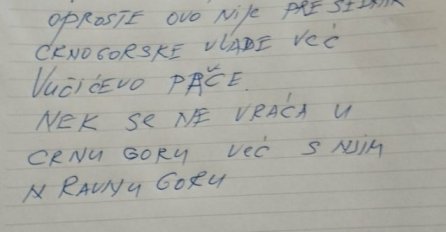 OPROSTE OVO NIJE PRESEDNIK
CRNOGORSKE VLADE VEĆ
VUČIĆEVO PAČE.
NEK SE NE VRAĆA U
CRNU GORU VEĆ S NJIM
N RAVNU GORU